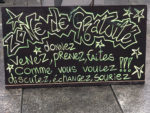 Zone de gratuité
donnez
venez, prenez, faites
comme vous voulez!!!
discutez, échangez, souriez